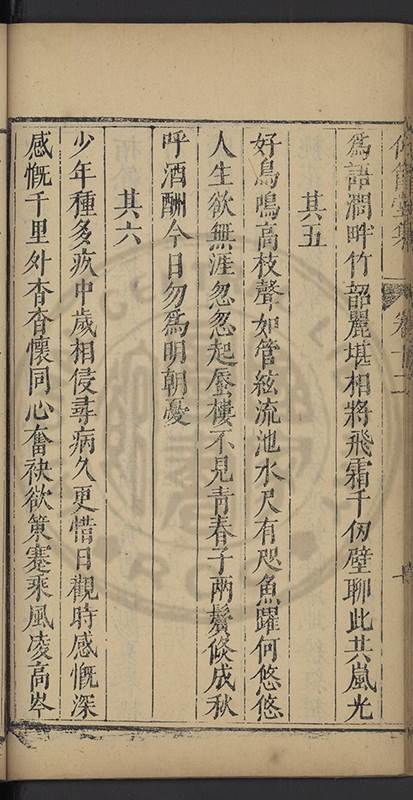 集 卷十二
為語澗畔竹韶麗堪相將飛霜千仞壁聊此共嵐光
其五
好鳥鳴高枝聲如管絃流池水尺有咫魚躍何悠悠
人生欲無涯忽忽起蜃樓不見青春子兩鬢倐成秋
呼酒酬今日勿為明朝憂
其六
少年種多疚中歲相侵尋病久更惜日觀時感慨深
感慨千里外杳杳懷同心奮袂欲褰乘風凌高岑